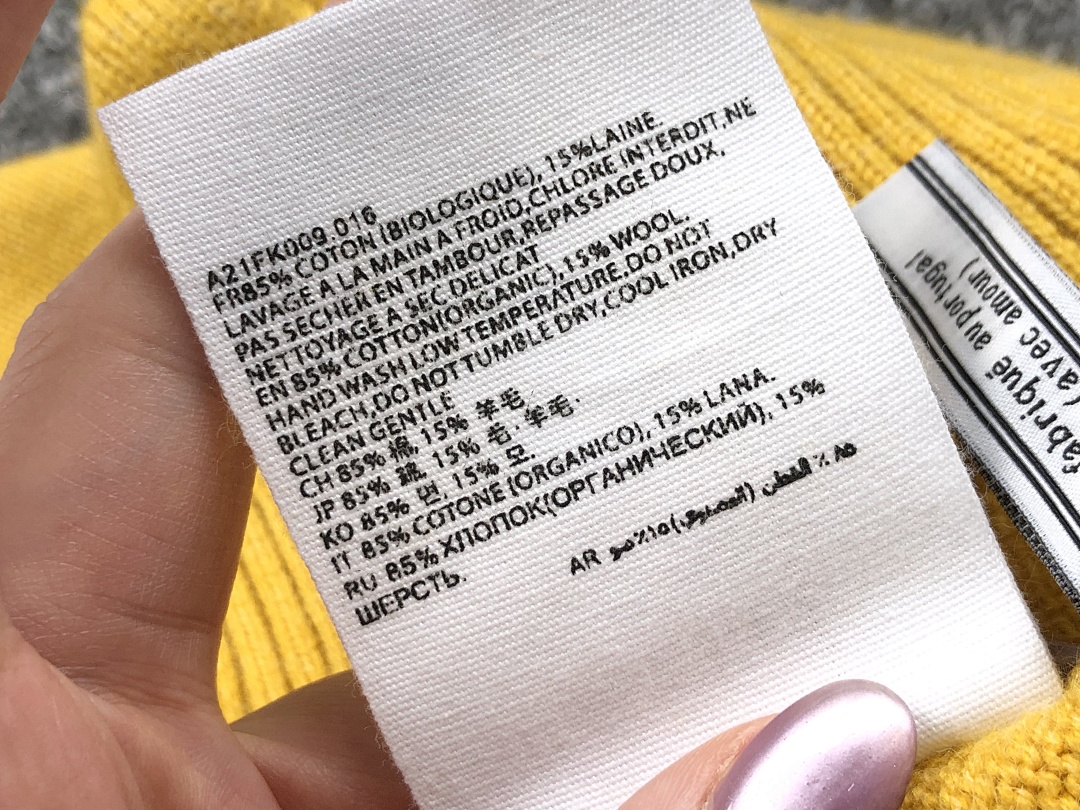 A21FK009.016
FR85% COTON (BIOLOGIQUE), 15%LAINE.
LAVAGE A LA MAIN A FROID,CHLORE INTERDIT,NE
PAS SECHER EN TAMBOUR,REPASSAGE DOUX,
NETTOYAGE A SEC DELICAT
EN 85% COTTON(ORGANIC),15% WOOL.
HAND WASH LOW TEMPERATURE.DO NOT
BLEACH,DO NOT TUMBLE DRY,COOL IRON,DRY
CLEAN GENTLE
CH 85% 棉, 15% 羊毛
JP 85% 15% 毛·羊毛.
KO 85% 면, 15% 모
IT 85% COTONE (ORGANICO), 15% LANA.
RU 85% ХЛОПОК(ОРГАНИЧЕСКИЙ), 15%
ШЕРСТЬ.
AR ٨٥ ٪ القطن ٪١٥
fabriqué au portugal
(avec amour)